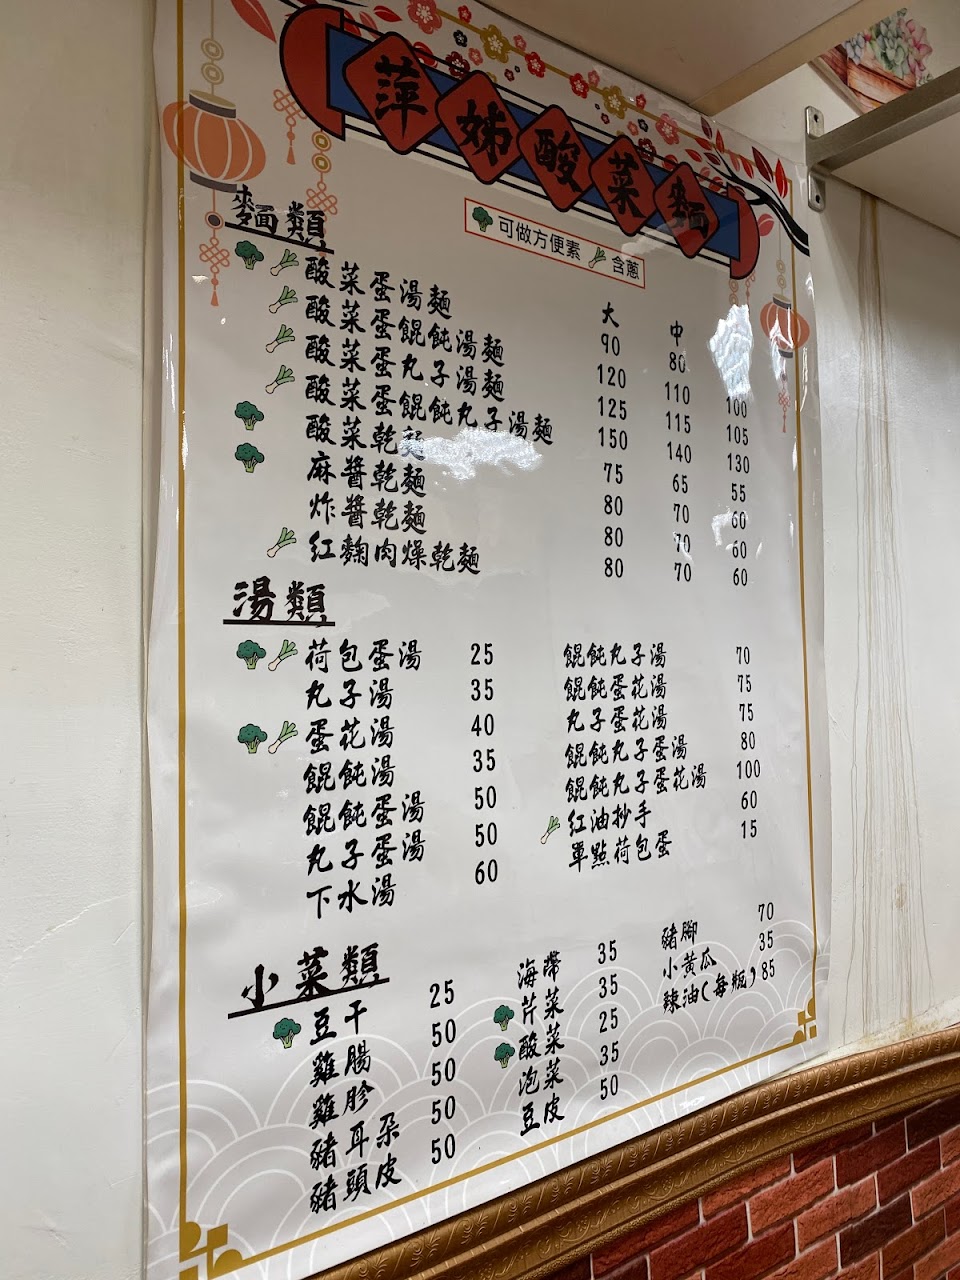 萍姊酸菜麵
可做方便素 含蔥
麵類
大 中
酸菜蛋湯麵 90 80
酸菜蛋餛飩湯麵 120 110 100
酸菜蛋丸子湯麵 125 115 105
酸菜蛋餛飩丸子湯麵 150 140 130
酸菜乾麵 75 65 55
麻醬乾麵 80 70 60
炸醬乾麵 80 70 60
紅麴肉燥乾麵 80 70 60
湯類
荷包蛋湯 25
丸子湯 35
蛋花湯 40
餛飩湯 35
餛飩蛋湯 50
丸子蛋湯 50
下水湯 60
餛飩丸子湯 70
餛飩蛋花湯 75
丸子蛋花湯 75
餛飩丸子蛋湯 80
餛飩丸子蛋花湯 100
紅油抄手 60
單點荷包蛋 15
小菜類
豆干 25
雞腸 50
雞胗 50
豬耳朵 50
豬頭皮 50
海帶 35
芹菜 35
酸菜 25
泡菜 35
豆皮 50
豬腳 70
小黃瓜 35
辣油(每瓶) 85